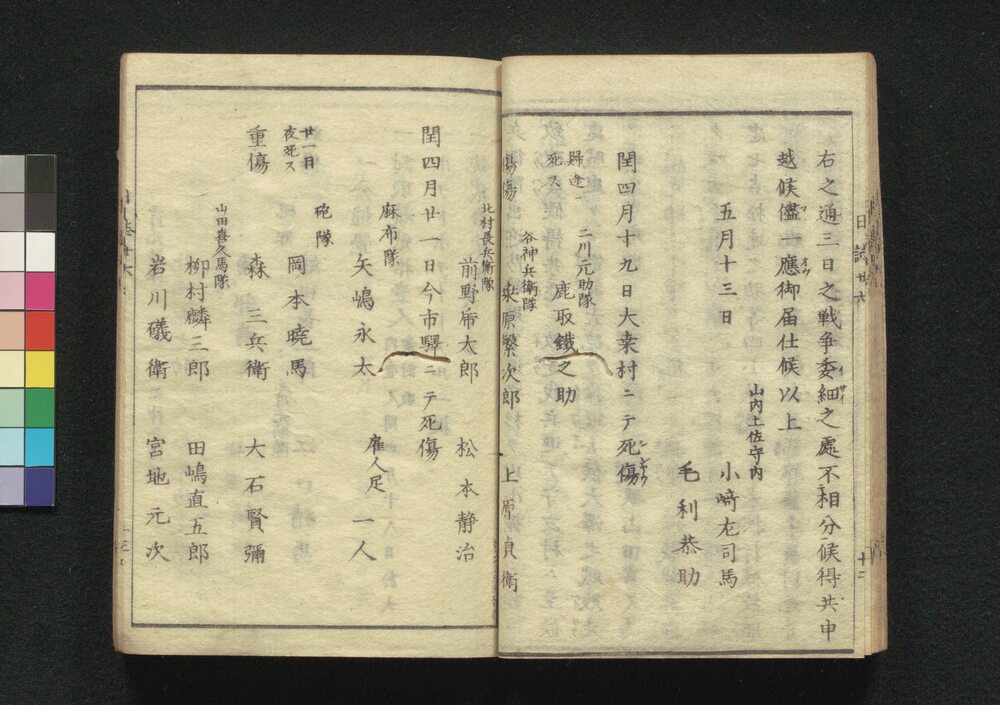 日誌廿六
十二
右之通三日之戦争委細之處不相分候得共申
イサイ
越候儘一應御届仕候以上
マヽ
オウ
五月十三日
山内土佐守内
小﨑左司馬
毛利恭助
閏四月十九日大桒村ニテ死傷
シシヤウ
二川元助隊
歸途
死ス
鹿取鐵之助
谷神兵衛隊
傷傷
桒原繁次郎
上原貞衛
北村長兵衛隊
前野常太郎
松本静治
閏四月廿一日今市驛ニテ死傷
麻布隊
矢嶋永太
雇人足
一人
砲隊
廿一日
夜死ス
岡本曉馬
重傷
森三兵衛
大石賢彌
山田喜久馬隊
柳村麟三郎
田嶋直五郎
岩川礒衛
宮地元次